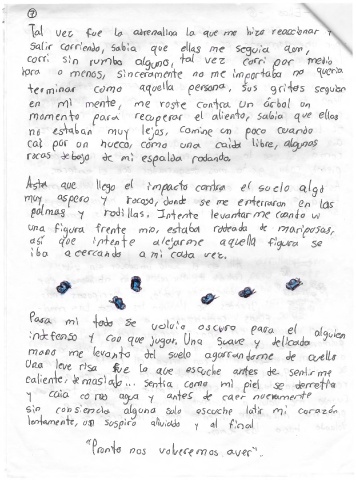 7
Tal vez fue la adrenalina la que me hizo reaccionar y
salir corriendo, sabia que ellas me seguia aun,
corri sin rumbo alguno, tal vez corri por medio
hora o menos, sinceramente no me importaba no queria
terminar como aquella persona, sus gritos seguian
en mi mente, me roste contra un árbol un
momento para recuperar el aliento, sabia que ellas
no estaban muy lejos, camine un poco cuando
cai por un hueco, como una caida libre, algunas
rocas debajo de mi espalda rodando.
Asta que llego el impacto contra el suelo algo
muy aspero y rocoso, donde se me enterraron en las
palmas y rodillas. Intente levantarme cuando vi
una figura frente mio, estaba rodeada de mariposas,
así que intente alejarme aquella figura se
iba acercando a mi cada vez.
Para mi todo se volvio oscuro para el alguien
indefenso y con que jugar. Una suave y delicada
mano me levanto del suelo agarrandome de cuello
Una leve risa fue lo que escuche antes de sentirme
caliente, demasiado... sentia como mi piel se derretia
y caia como agua y antes de caer nuevamente
sin consiencia alguna solo escuche latir mi corazón
lentamente, un suspiro aliviado y al final
"Pronto nos volveremos aver".